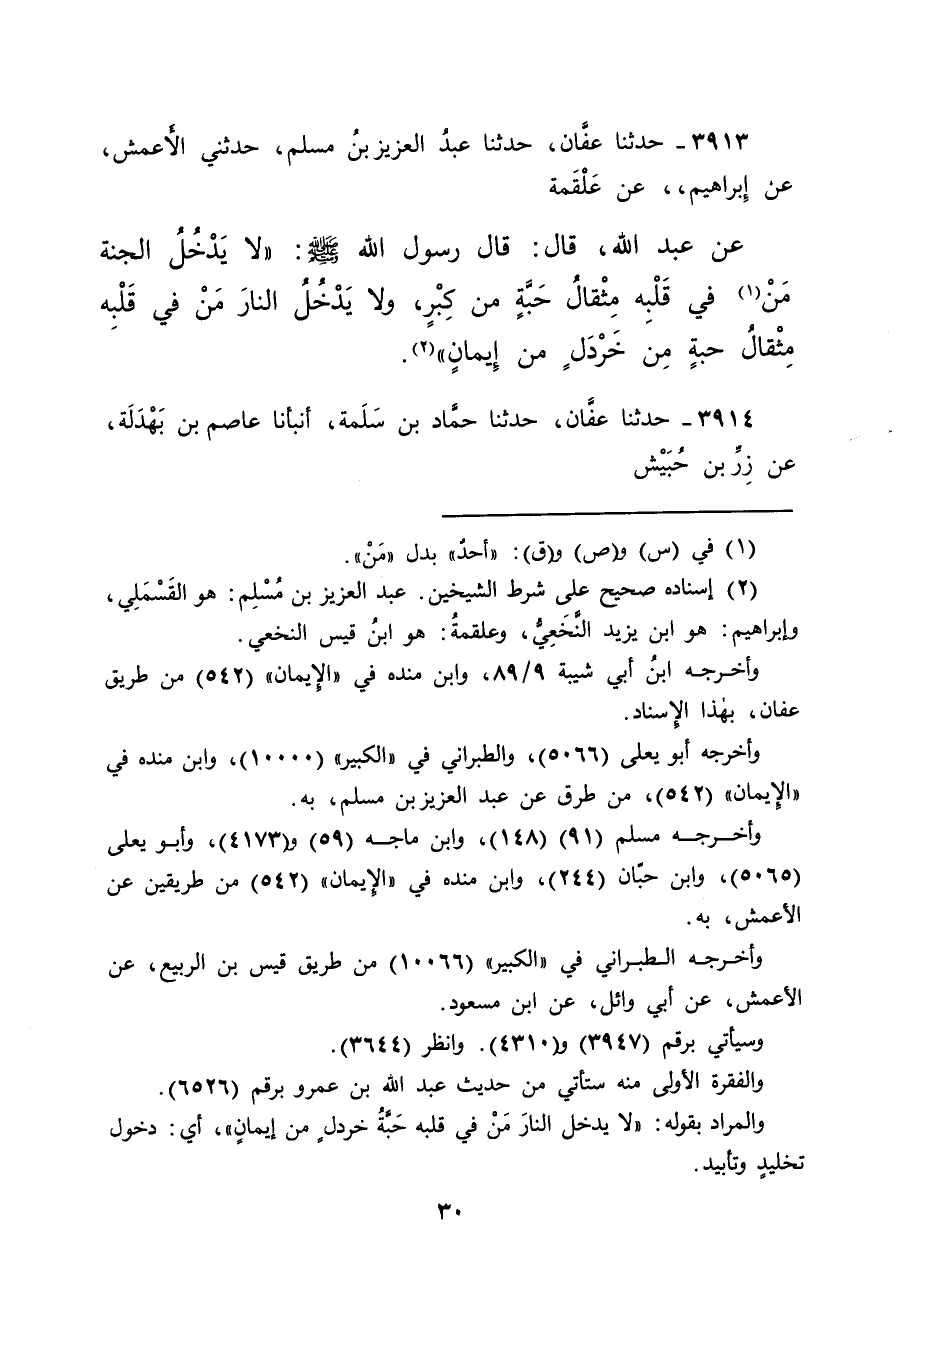 ٣٩١٣ـ حدثنا عفَّان، حدثنا عبدُ العزيز بنُ مسلم، حدثني الأَعمش،
عن إِبراهيم،، عن عَلْقَمة
عن عبد الله، قال: قال رسول الله ﷺ: «لا يَدْخُلُ الجنة
مَنْ(١) في قَلْبِه مِثْقالُ حَبَّةٍ من كِبْرٍ، ولا يَدْخُلُ النارَ مَنْ في قَلْبِه
مِثْقالُ حبةٍ مِن خَرْدَلٍ من إِيمانٍ»(٢).
٣٩١٤ـ حدثنا عفَّان، حدثنا حمَّاد بن سَلَمة، أنبأنا عاصم بن بَهْدَلَة،
عن زِرِّ بن حُبَيْش
(١) في (س) و(ص) و(ق): «أحدٌ» بدل «مَنْ».
(٢) إسناده صحيح على شرط الشيخين. عبد العزيز بن مُسْلِم: هو القَسْمَلِي،
وإبراهيم: هو ابن يزيد النَّخَعِيُّ، وعلقمةُ: هو ابنُ قيس النخعي.
وأخرجه ابنُ أبي شيبة ٨٩/٩، وابن منده في «الإيمان» (٥٤٢) من طريق
عفان، بهٰذا الإسناد.
وأخرجه أبو يعلى (٥٠٦٦)، والطبراني في «الكبير» (١٠٠٠٠)، وابن منده في
«الإيمان» (٥٤٢)، من طرق عن عبد العزيز بن مسلم، به.
وأخرجه مسلم (٩١) (١٤٨)، وابن ماجه (٥٩) و(٤١٧٣)، وأبو يعلى
(٥٠٦٥)، وابن حبّان (٢٤٤)، وابن منده في «الإيمان» (٥٤٢) من طريقين عن
الأعمش، به.
وأخرجه الطبراني في «الكبير» (١٠٠٦٦) من طريق قيس بن الربيع، عن
الأعمش، عن أبي وائل، عن ابن مسعود.
وسيأتي برقم (٣٩٤٧) و(٤٣١٠). وانظر (٣٦٤٤).
والفقرة الأولى منه ستأتي من حديث عبد الله بن عمرو برقم (٦٥٢٦).
والمراد بقوله: «لا يدخل النارَ مَنْ في قلبه حَبَّةُ خردلٍ من إيمانٍ»، أي: دخول
تخليدٍ وتأبيد.
٣٠